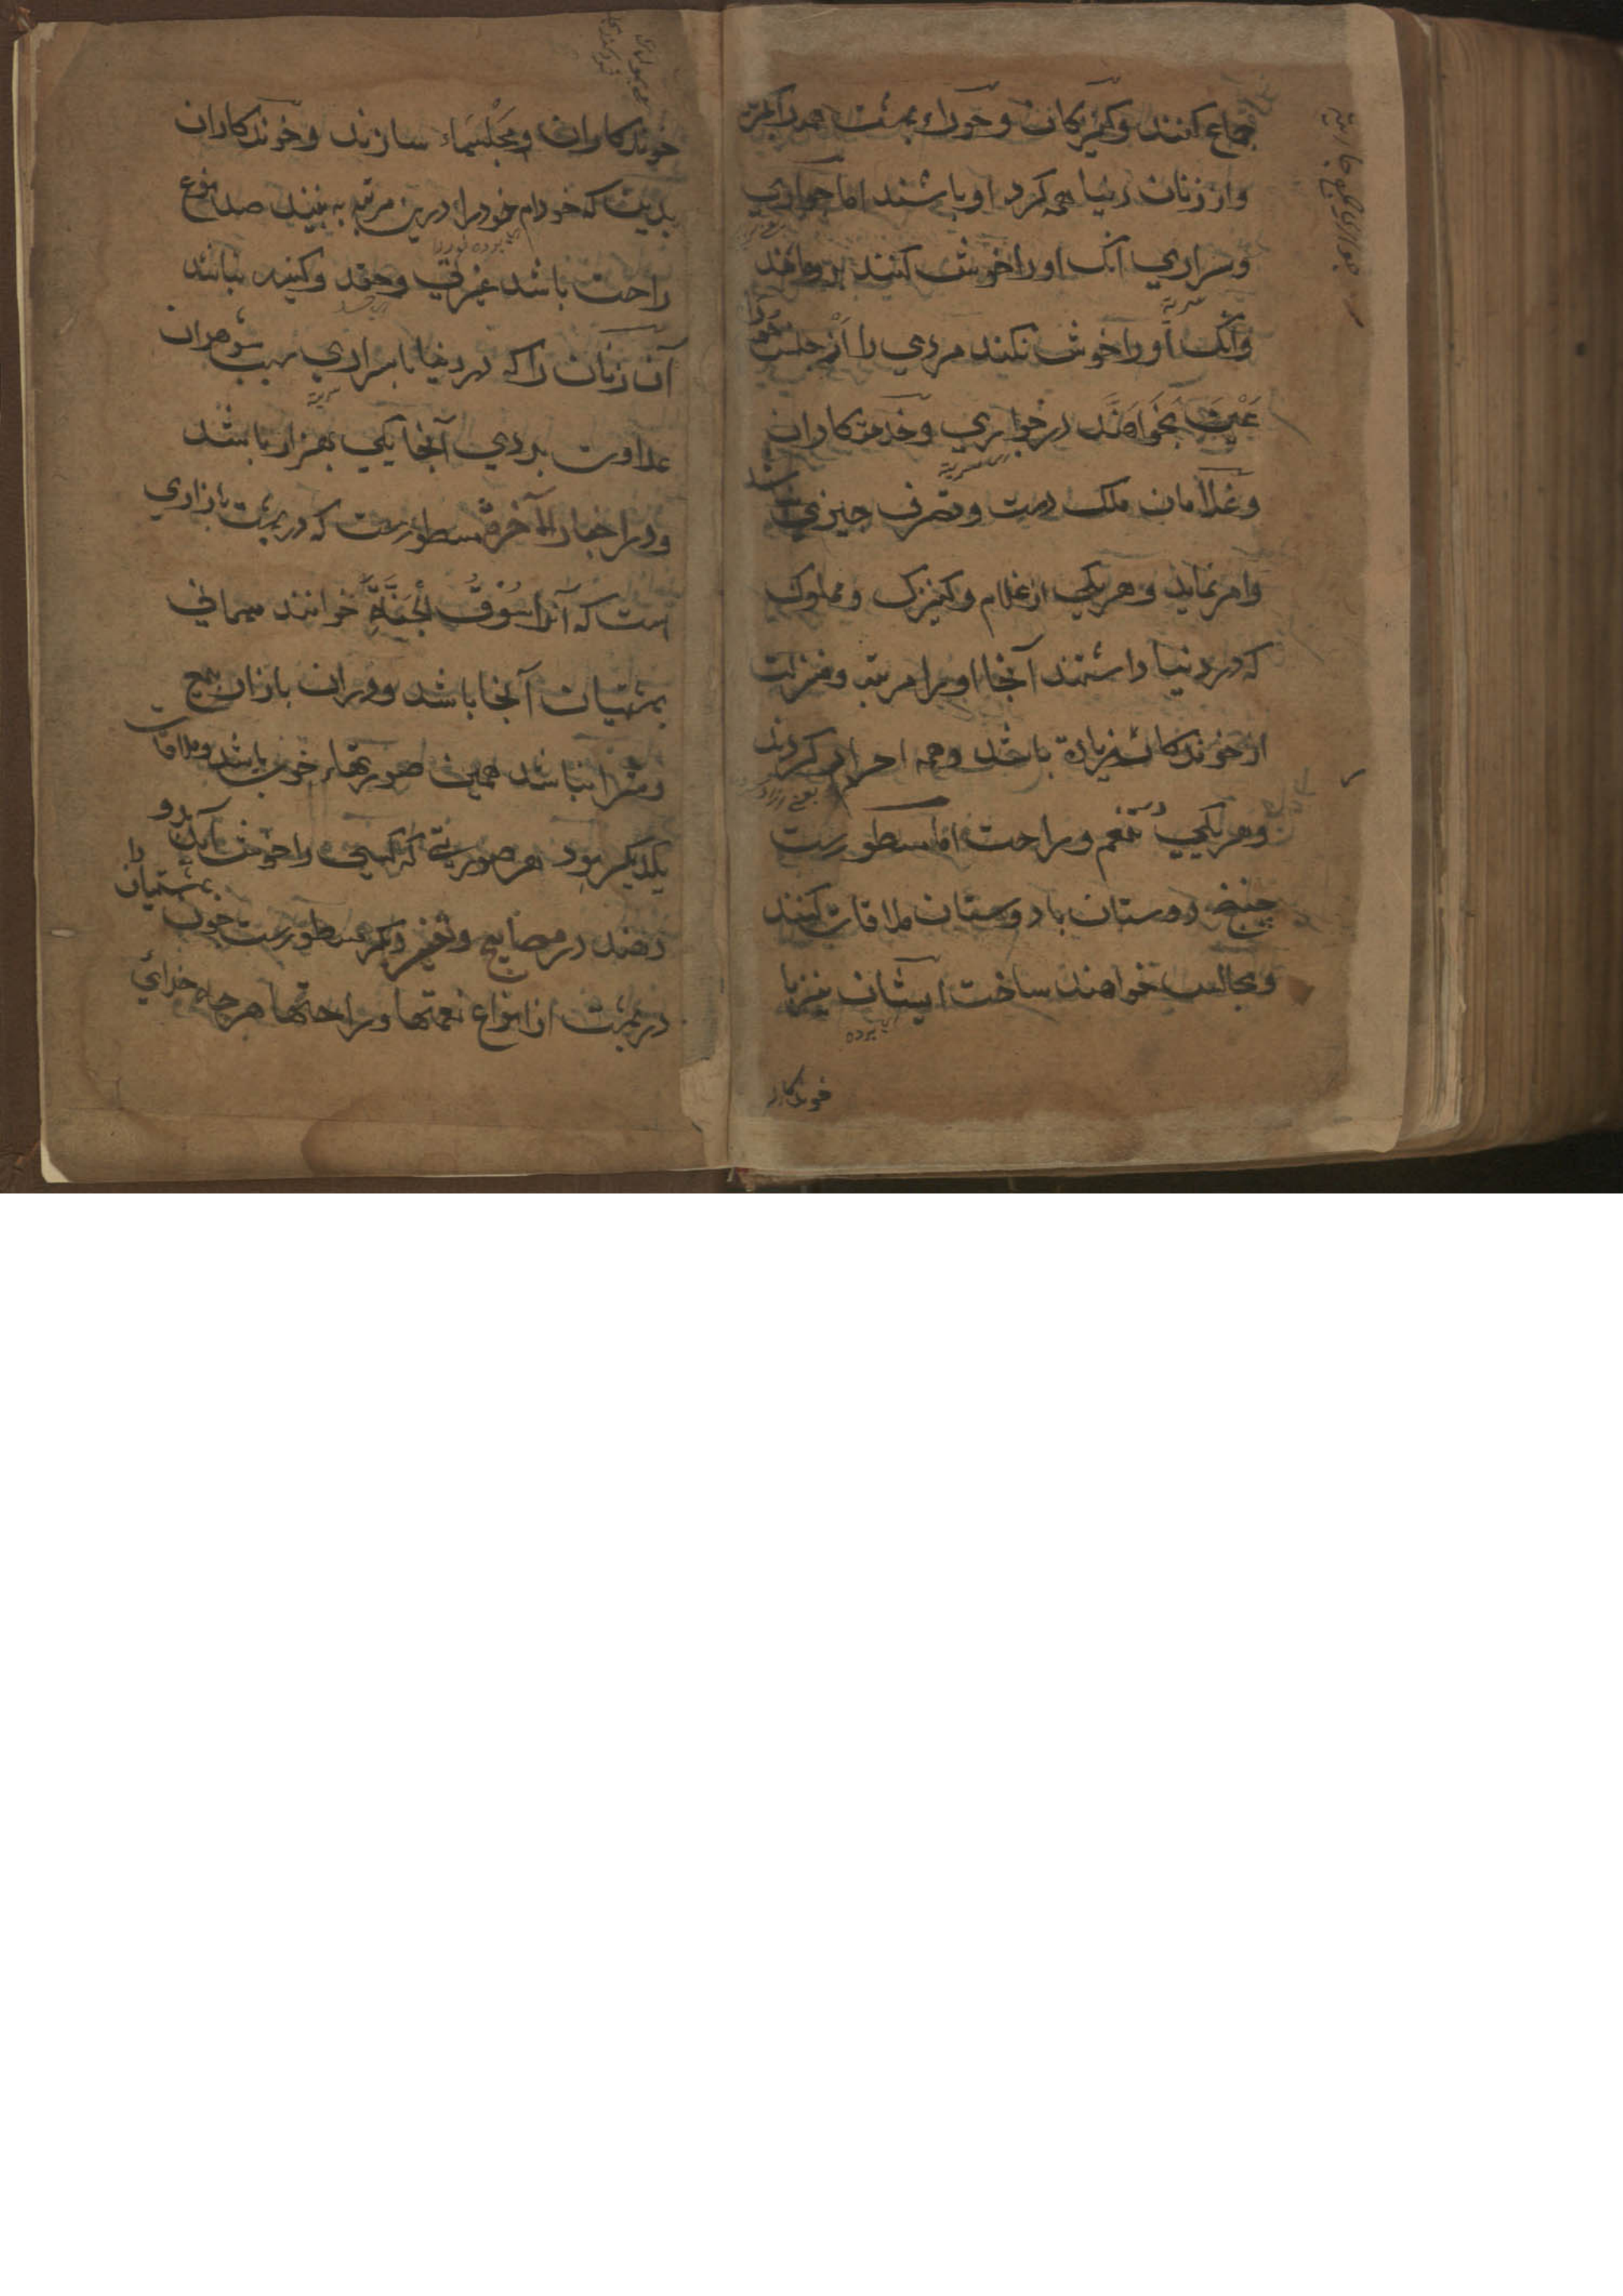 جماع کنند و کنیزکان و حوران بهشت همه دیگر
و از زنان دنیا همه کرد او باشند اما جواری
و سراری آنک او را خوش کنند بدو ماند
و آنک او را خوش نکند مردی را از جنس خود
عین بخواهند در جواری و خدمتکاران
و غلامان ملک دست و تصرف چیزی
و امر نماید و هر یکی از غلام و کنیزک و مملوک
که در دنیا داشتند آنجا او را مرتبه و منزلت
از خوندکان زیادة باشد و همه احرار کردند
و هر یکی در تنعم و راحت اما مسطورست
دوستان با دوستان ملاقات کنند
و مجالس خواهند ساخت ایشان نیز با
خوندکار
خوندکاران و مجلسهاء سازند و خوندکاران
بدیت که خدام خود را درین مرتبه به بینند صد نوع
راحت باشد غیرتی و حقد و کینه نباشد
آن زنان را که در دنیا با سراری سبب شوهران
عداوت بردی آنجا یکی بهزار باشد
و در اخبار الآخرة مسطورست که در بهشت بازاری
است که آنرا سُوْقُ الْجَنَّةِ خوانند میهمانی
بهشتیان آنجا باشد و دران بازار بیع
و شرا نباشد همین صورتهاء خوب باشد و ملاقات
یکدیگر بود هر صورتی که کسی را خوش آید بدو
دهند در مصابیح و تفسیر دیگر مسطورست چون بهشتیان را
در بهشت از انواع نعمتها و راحتها هر چه خدای